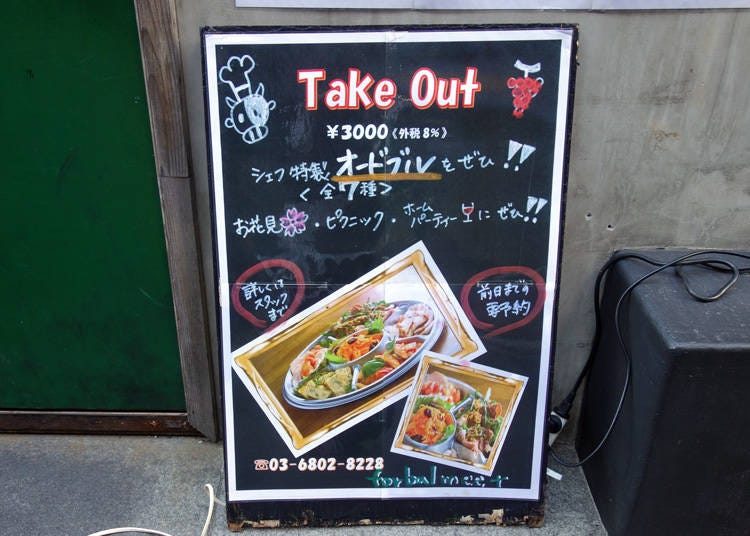 Take Out
¥3000《外税8%》
シェフ特製オードブルをぜひ!!
<全7種>
お花見・ピクニック・ホームパーティーにぜひ!!
詳しくは
スタッフ
まで
前日までの
要予約
☎03-6802-8228